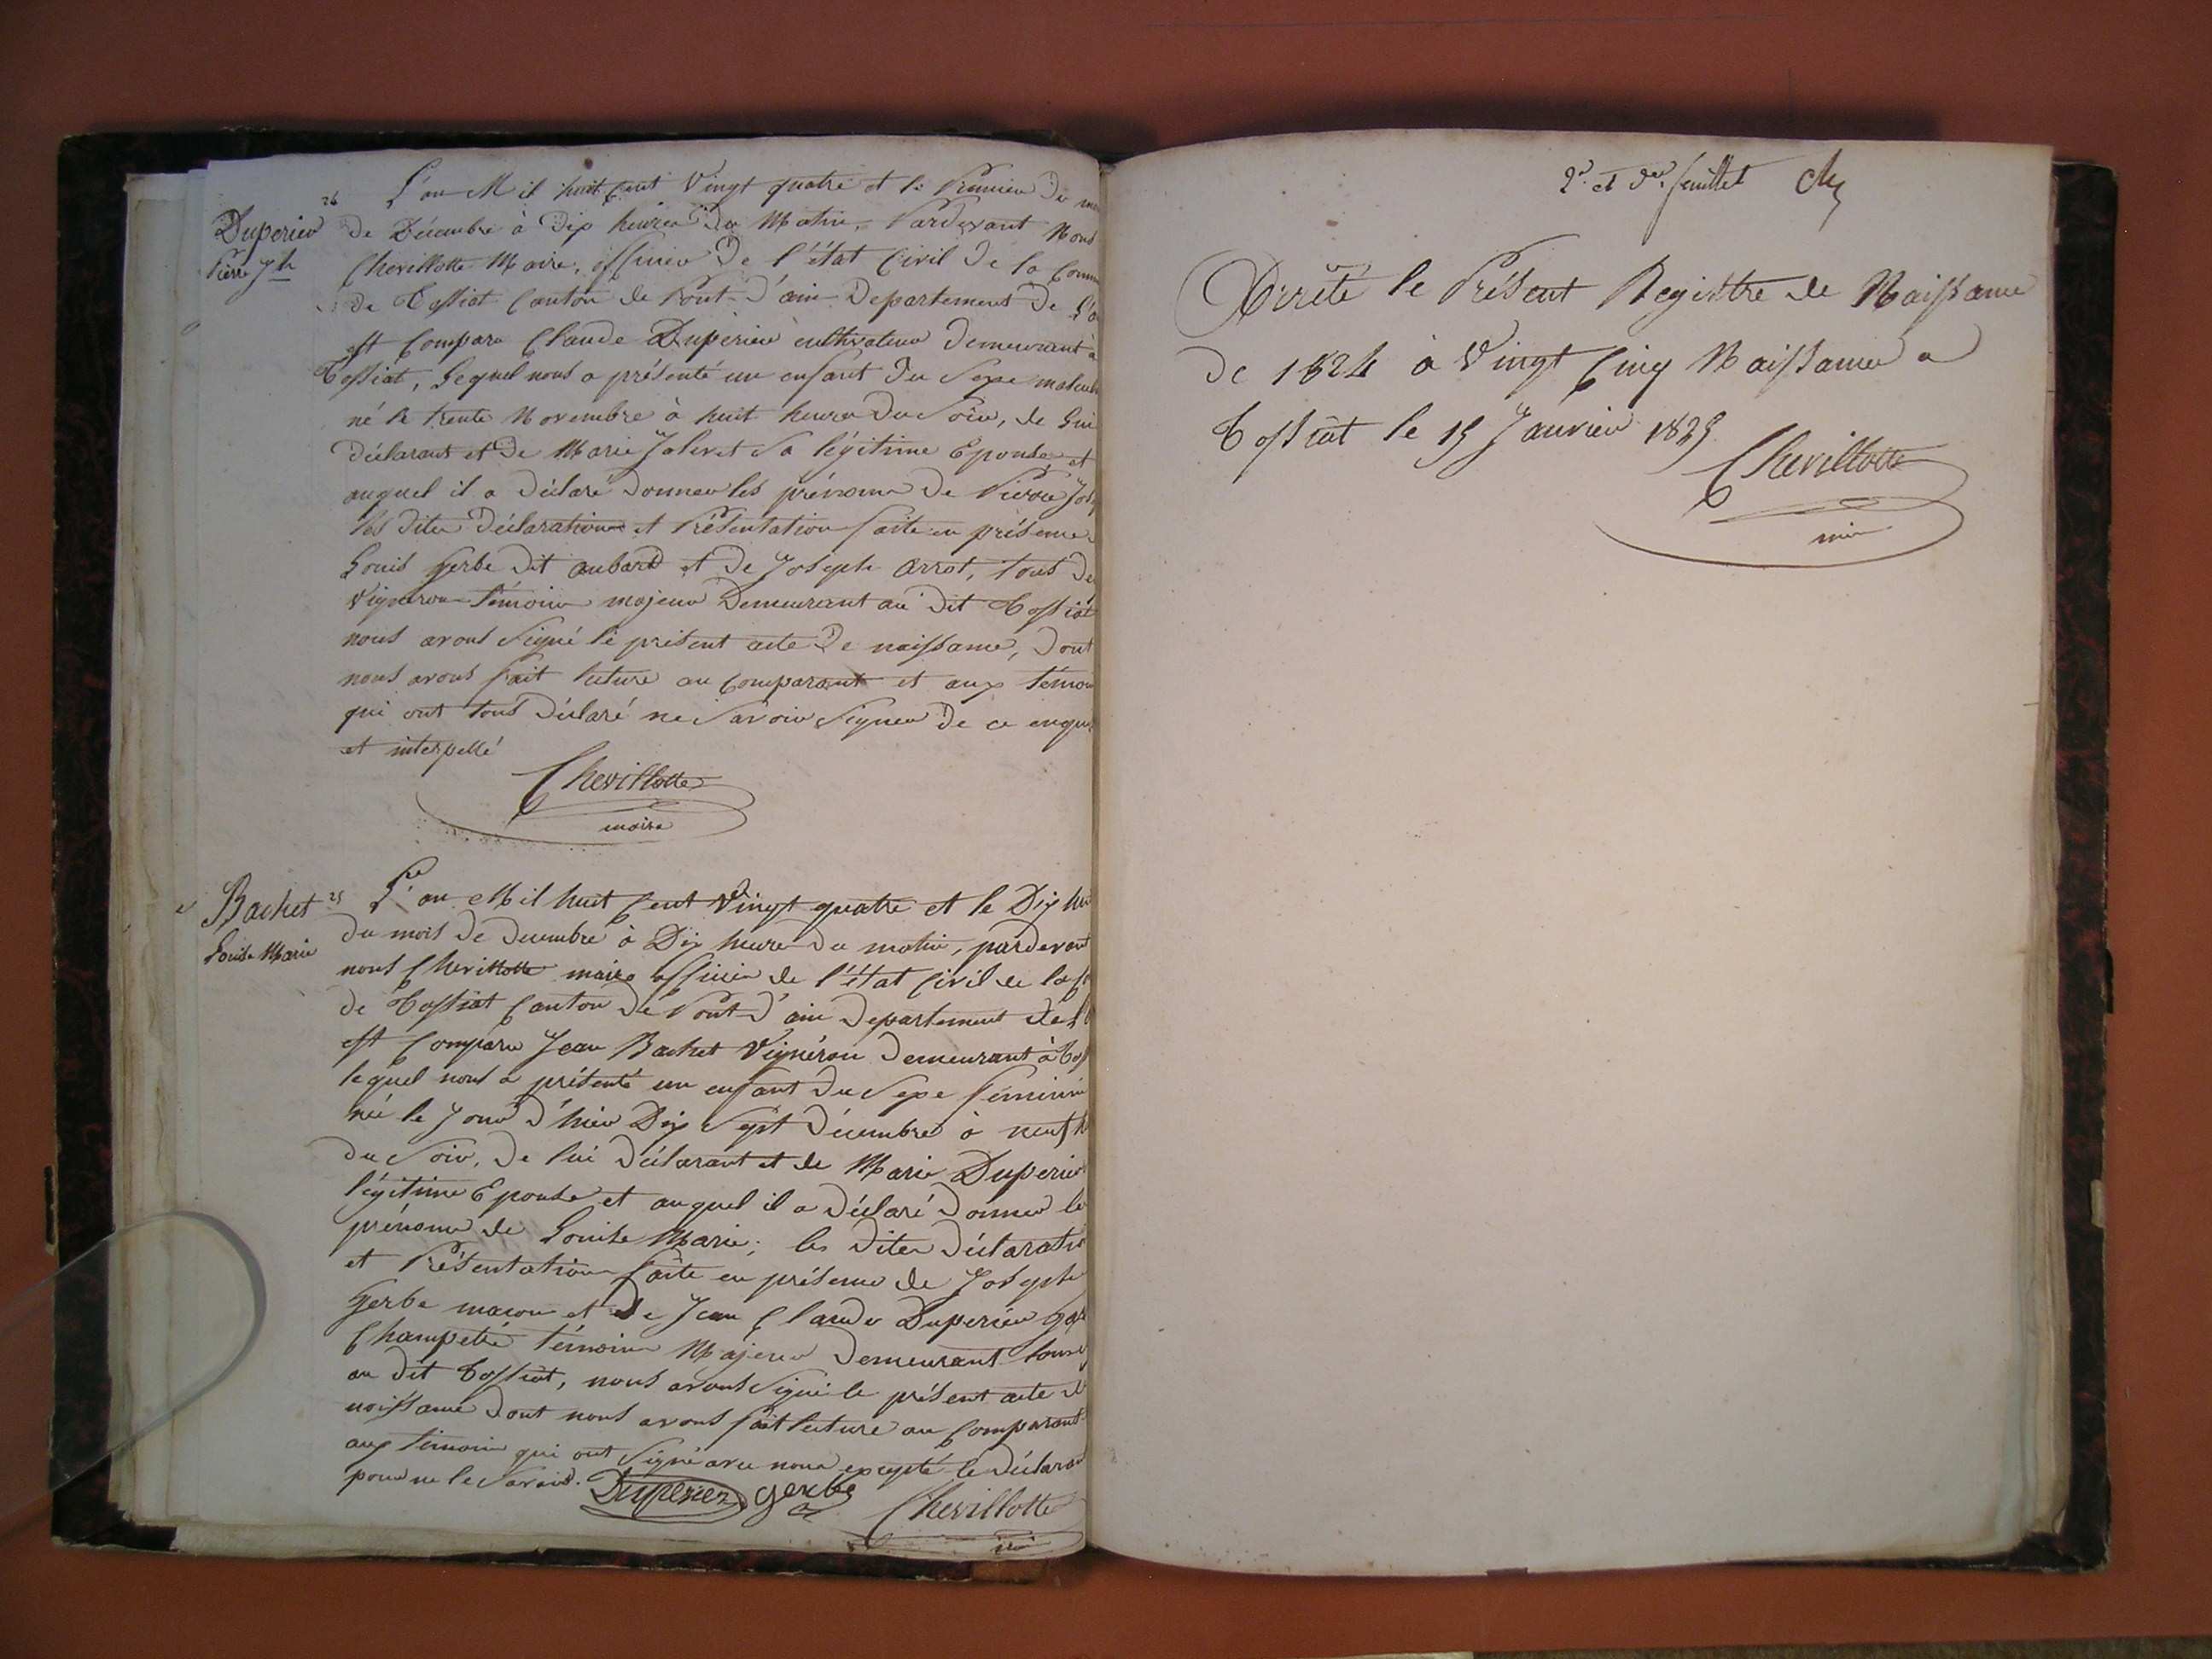 Duperier
Pierre Jh
L'an Mil huit Cent Vingt quatre et le Premier Du
De Décembre à Dix heures Du Matin, Pardevant Nous
Chevillotte Maire, officier De l'état Civil De la
De Tossiat Canton de Pont-D'ain Departement De
est Comparu Claude Duperier cultivateur Demeurant à
Tossiat, Lequel nous a présenté un enfant Du Sexe
né le trente Novembre à huit heures Du Soir, de Lui
Déclarant et De Marie Joleret Sa légitime Epouse, et
auquel il a Déclaré Donner les prénoms De Pierre
les Dites Déclarations et Présentation faite en présence
Louis Gerbe Dit aubard et De Joseph arrot, tous
Vigneron témoins majeurs Demeurant au Dit Tossiat
nous avons Signé le présent acte De naissance, Dont
nous avons fait lecture au Comparant et aux
qui ont tous Déclaré ne Savoir Signer De ce
et interpellé
Chevillotte
maire
Bachet
Louise Marie
25 L'an Mil huit Cent Vingt quatre et le Dix
Du mois De Decembre à Dix heures Du matin, pardevant
nous Chevillotte maire officier de l'état Civil de la
de Tossiat Canton De Pont-D'ain Departement de
est Comparu Jean Bachet Vigneron Demeurant à
lequel nous a présenté un enfant Du Sexe féminin
née le Jour D'hier Dix Sept Décembre à neuf
Du Soir, De lui Déclarant et de Marie Duperier
légitime Epouse et auquel il a Déclaré Donner le
prénoms de Louise Marie; les Dites
et Présentation faite en présence de Joseph
Gerbe maçon et De Jean Claude Duperier
Champetre témoins Majeurs Demeurant tous
au Dit Tossiat, nous avons Signé le présent acte
naissance Dont nous avons fait lecture au Comparant
aux témoins qui ont Signé avec nous excepté le
pour ne le Savoir. Duperier Gerbe Chevillotte
2e et Der feuillet
Arrêté le Présent Registre de Naissance
De 1824 à Vingt Cinq Naissances a
Tossiat le 15 Janvier 1825
Chevillotte